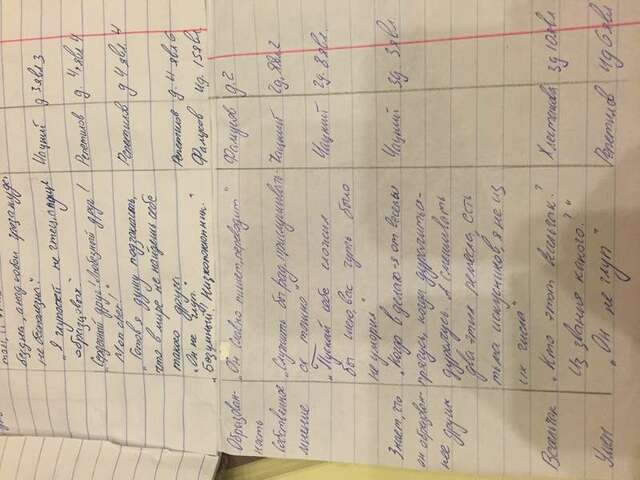 не бесполезна"
„Я глупостей не чтец, а пуще Чацкий д 3 явл 3
образцовых"
„Сердечный друг! Любезный друг! Репетилов д. 4, явл 4
Mon cher!"
„Готов я душу Репетилов д 4 явл. 4
что в мире не найдешь себе
такого друга, Репетилов
„Он не глуп" явл 6
„Безумный! Низкопоклонник." Фамусов
Образован- „Он славно пишет, переводит" Фамусов д. 2
ность
Собственное „Служить бы рад, прислуживать- Чацкий 2д.
мнение ся тошно"
„Пускай себе сломил Чацкий 2д. 8 явл.
бы шею, вас чуть было
не уморил"
Знает, что „Когда в делах-я от веселья Чацкий 3д 3 явл
он образован- прячусь, когда дурачиться-
нее других дурачусь. А смешивать
два этих ремесла, есть
тьма искусников, я не из
их числа"
Весельчак „Кто этот весельчак? Хлестонова 3д 10 явл
Из звания какого?"
Умен „Он не глуп" Репетилов 4д 6 явл